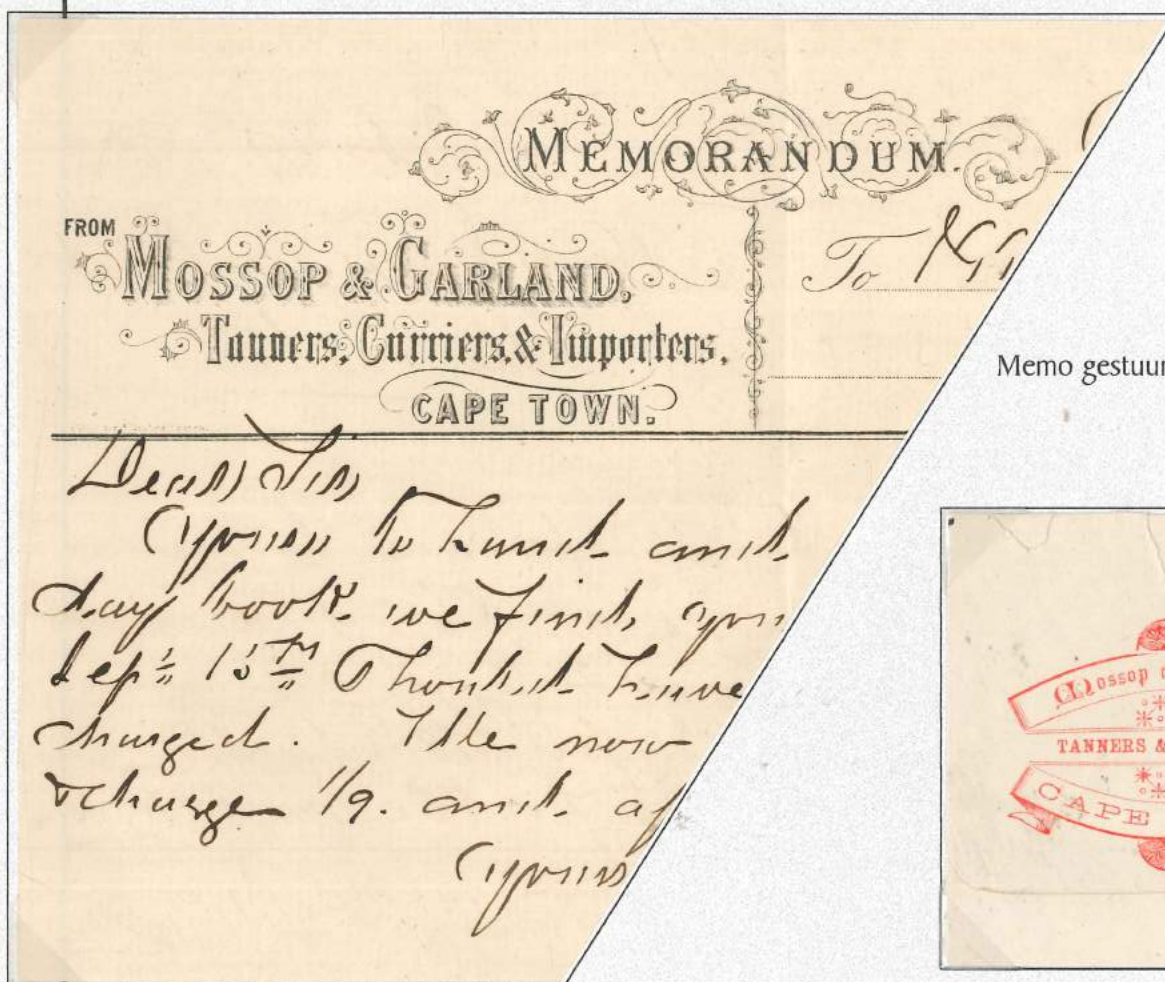 MEMORANDUM.
FROM
MOSSOP & GARLAND,
Tanners, Curriers, & Importers,
CAPE TOWN.
To
Dear Sir
Yours to hand and
day book we find you
Sep: 15th Should have
charged. We now
charge 1/9. and
Yours
Memo gestuur
Mossop
TANNERS &
CAPE